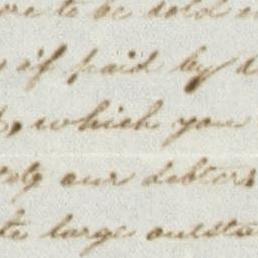 to be sold
if paid by
, which you
our debtors
large outsta